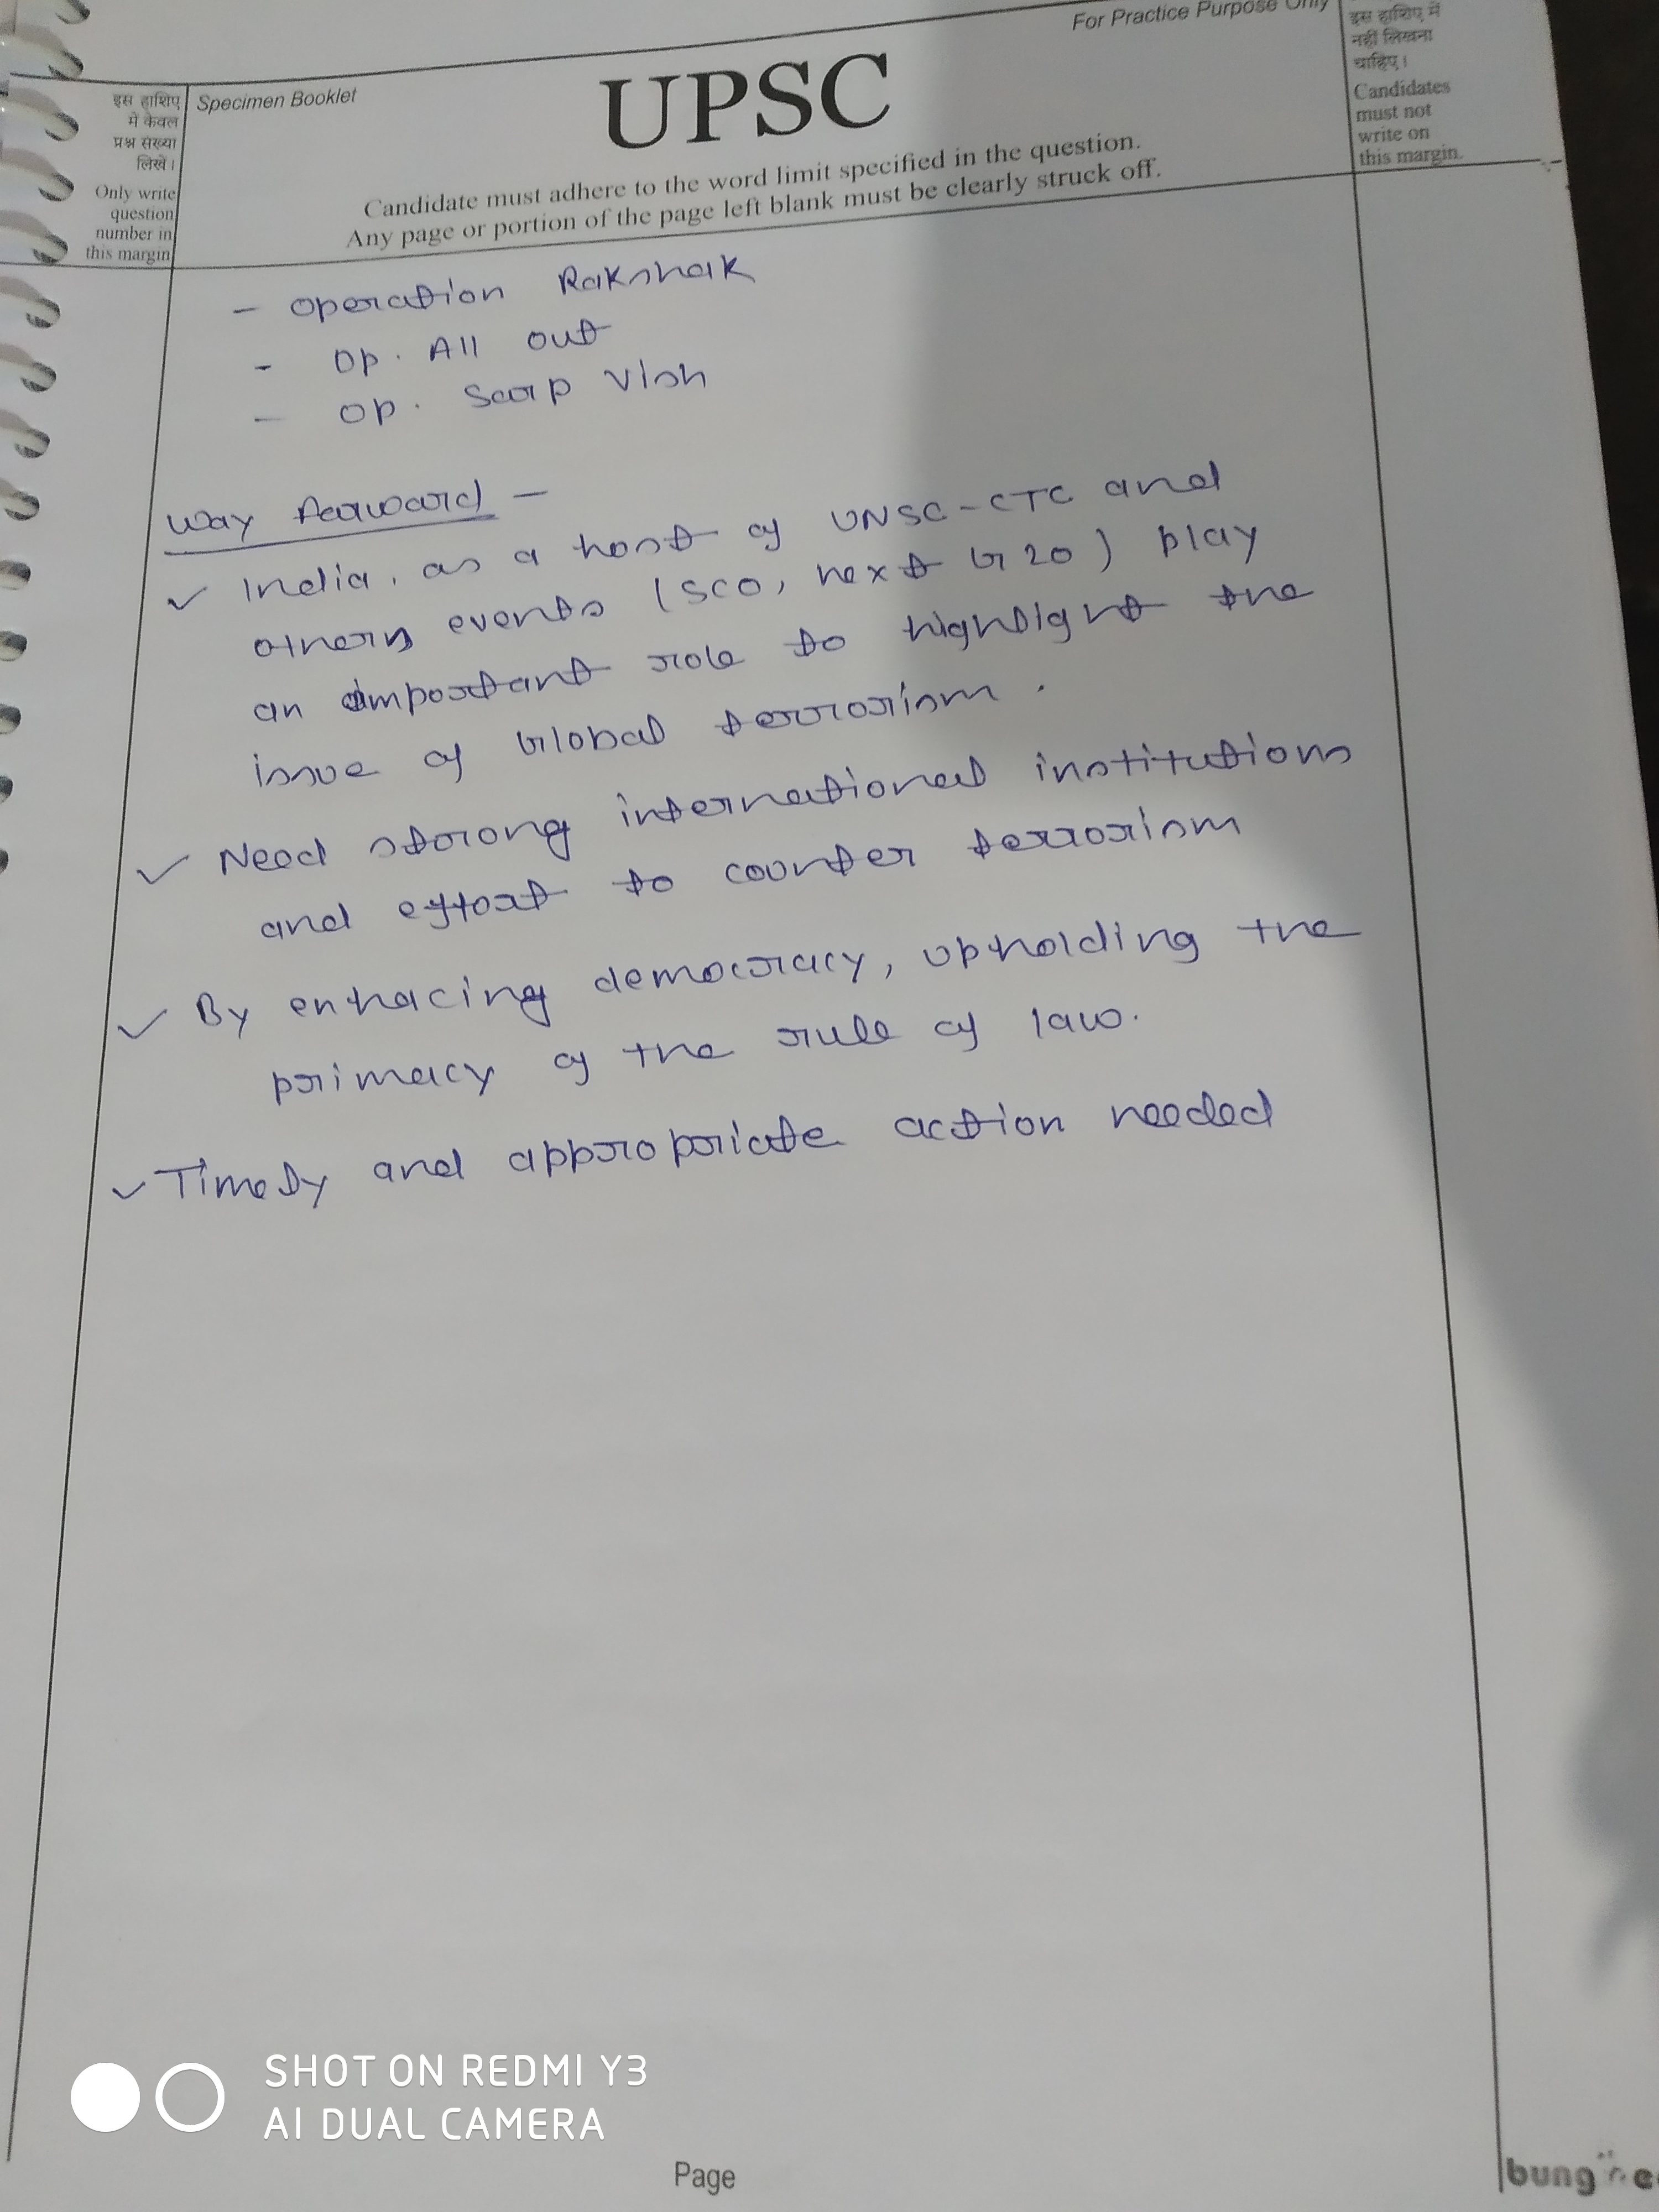 For Practice Purpose Only
इस हाशिए
में केवल
प्रश्न संख्या
लिखें।
Only write
question
number in
this margin
Specimen Booklet
UPSC
Candidate must adhere to the word limit specified in the question.
Any page or portion of the page left blank must be clearly struck off.
इस हाशिए में
नहीं लिखना
चाहिए।
Candidates
must not
write on
this margin.
- Operation Rakshak
- Op. All out
- Op. Sarp Vish
Way Forward -
✓ India, as a host of UNSC-CTC and
others events (SCO, next G20) play
an important role to highlight the
issue of Global terrorism.
✓ Need strong international institutions
and effort to counter terrorism
✓ By enhacing democracy, upholding the
primacy of the rule of law.
✓ Timely and appropriate action needed
SHOT ON REDMI Y3
AI DUAL CAMERA
Page